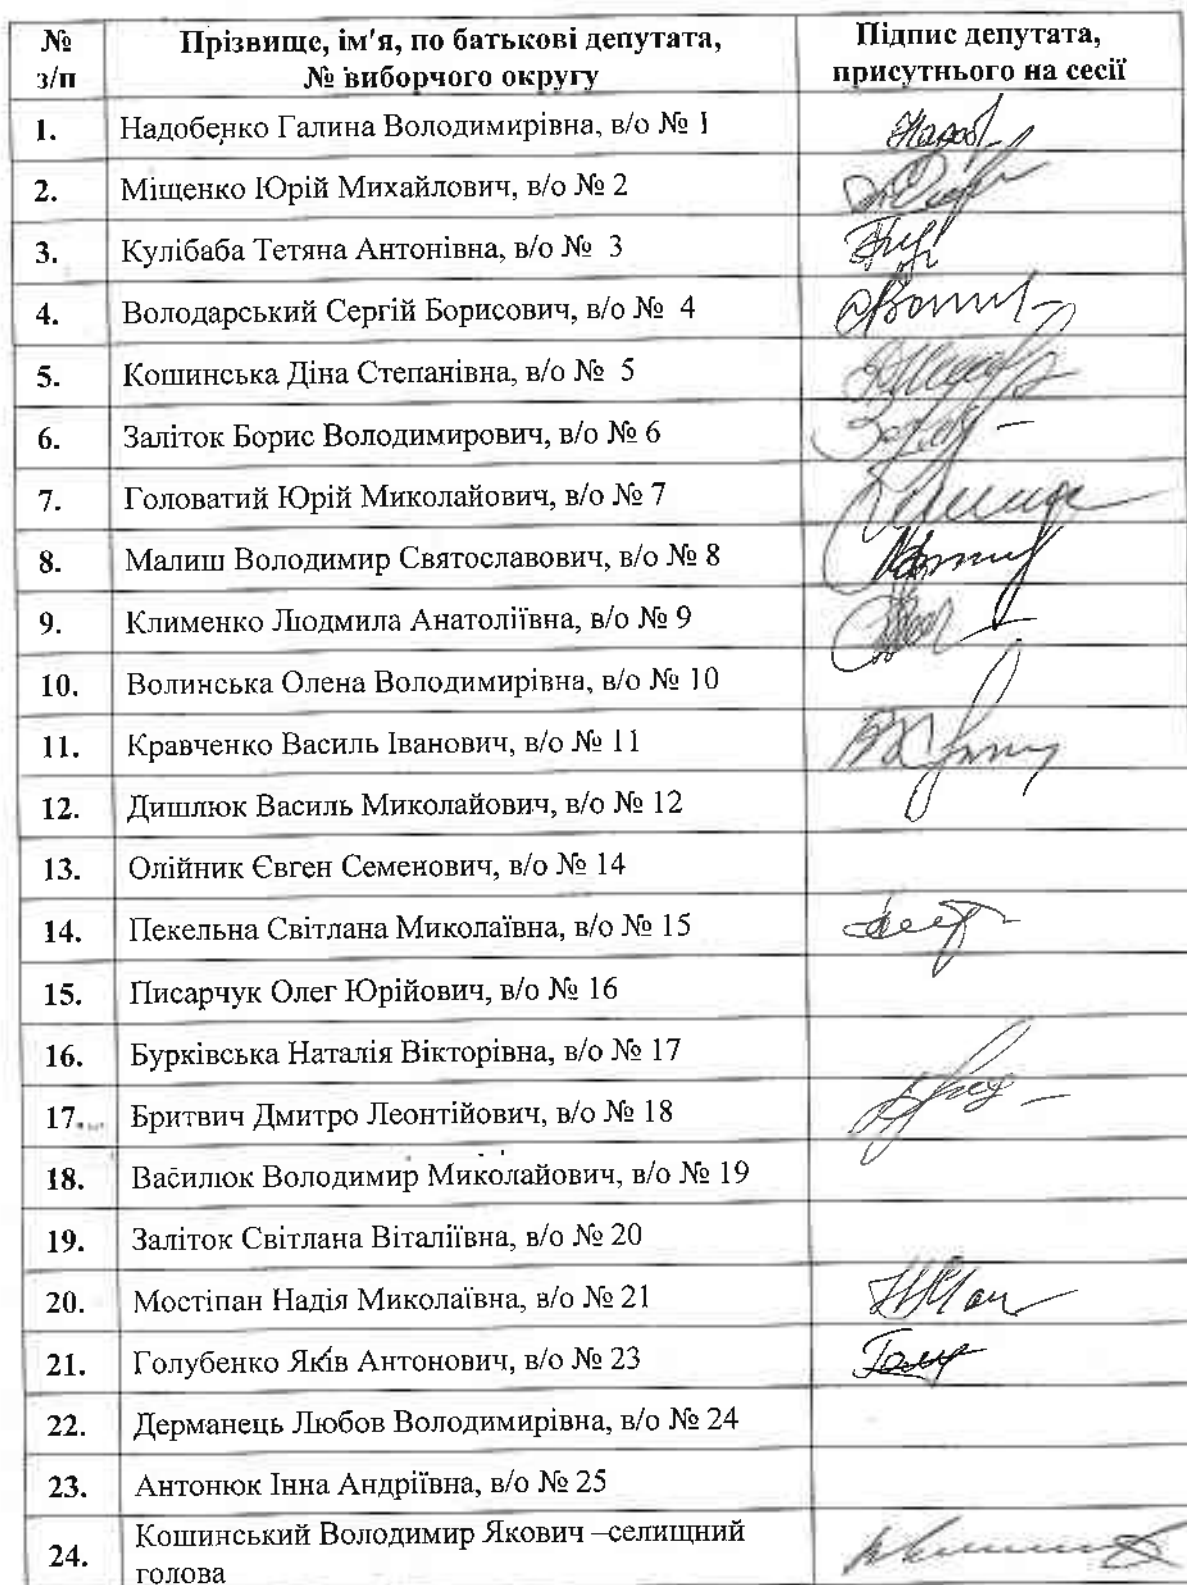 № з/п Прізвище, ім'я, по батькові депутата, № виборчого округу Підпис депутата, присутнього на сесії
1. Надобенко Галина Володимирівна, в/о № 1
2. Міщенко Юрій Михайлович, в/о № 2
3. Кулібаба Тетяна Антонівна, в/о № 3
4. Володарський Сергій Борисович, в/о № 4
5. Кошинська Діна Степанівна, в/о № 5
6. Заліток Борис Володимирович, в/о № 6
7. Головатий Юрій Миколайович, в/о № 7
8. Малиш Володимир Святославович, в/о № 8
9. Клименко Людмила Анатоліївна, в/о № 9
10. Волинська Олена Володимирівна, в/о № 10
11. Кравченко Василь Іванович, в/о № 11
12. Дишлюк Василь Миколайович, в/о № 12
13. Олійник Євген Семенович, в/о № 14
14. Пекельна Світлана Миколаївна, в/о № 15
15. Писарчук Олег Юрійович, в/о № 16
16. Бурківська Наталія Вікторівна, в/о № 17
17. Бритвич Дмитро Леонтійович, в/о № 18
18. Василюк Володимир Миколайович, в/о № 19
19. Заліток Світлана Віталіївна, в/о № 20
20. Мостіпан Надія Миколаївна, в/о № 21
21. Голубенко Яків Антонович, в/о № 23
22. Дерманець Любов Володимирівна, в/о № 24
23. Антонюк Інна Андріївна, в/о № 25
24. Кошинський Володимир Якович –селищний
голова